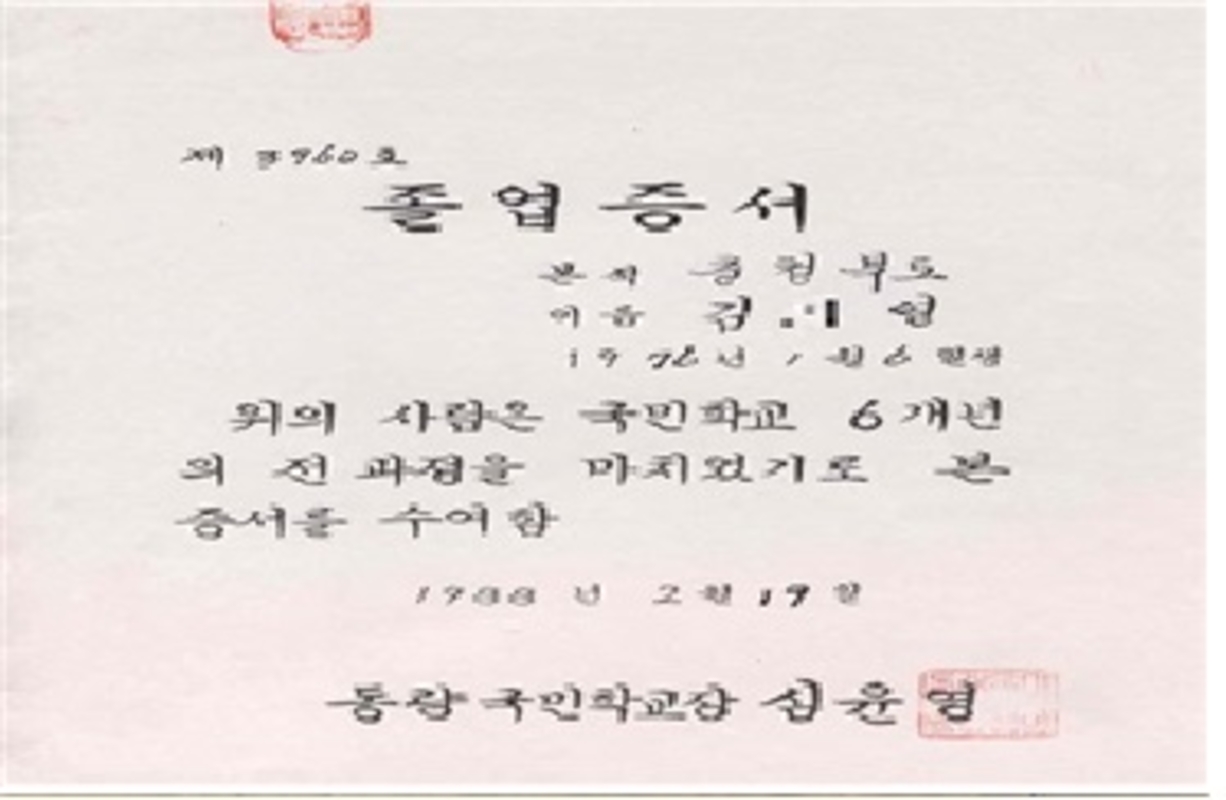 제 3960호
졸업증서
본적 충청북도
이름 김 영
19 년 1월 6일생
위의 사람은 국민학교 6개년
의 전 과정을 마치었기로 본
증서를 수여함
1988년 2월 19일
동량국민학교장 심윤영